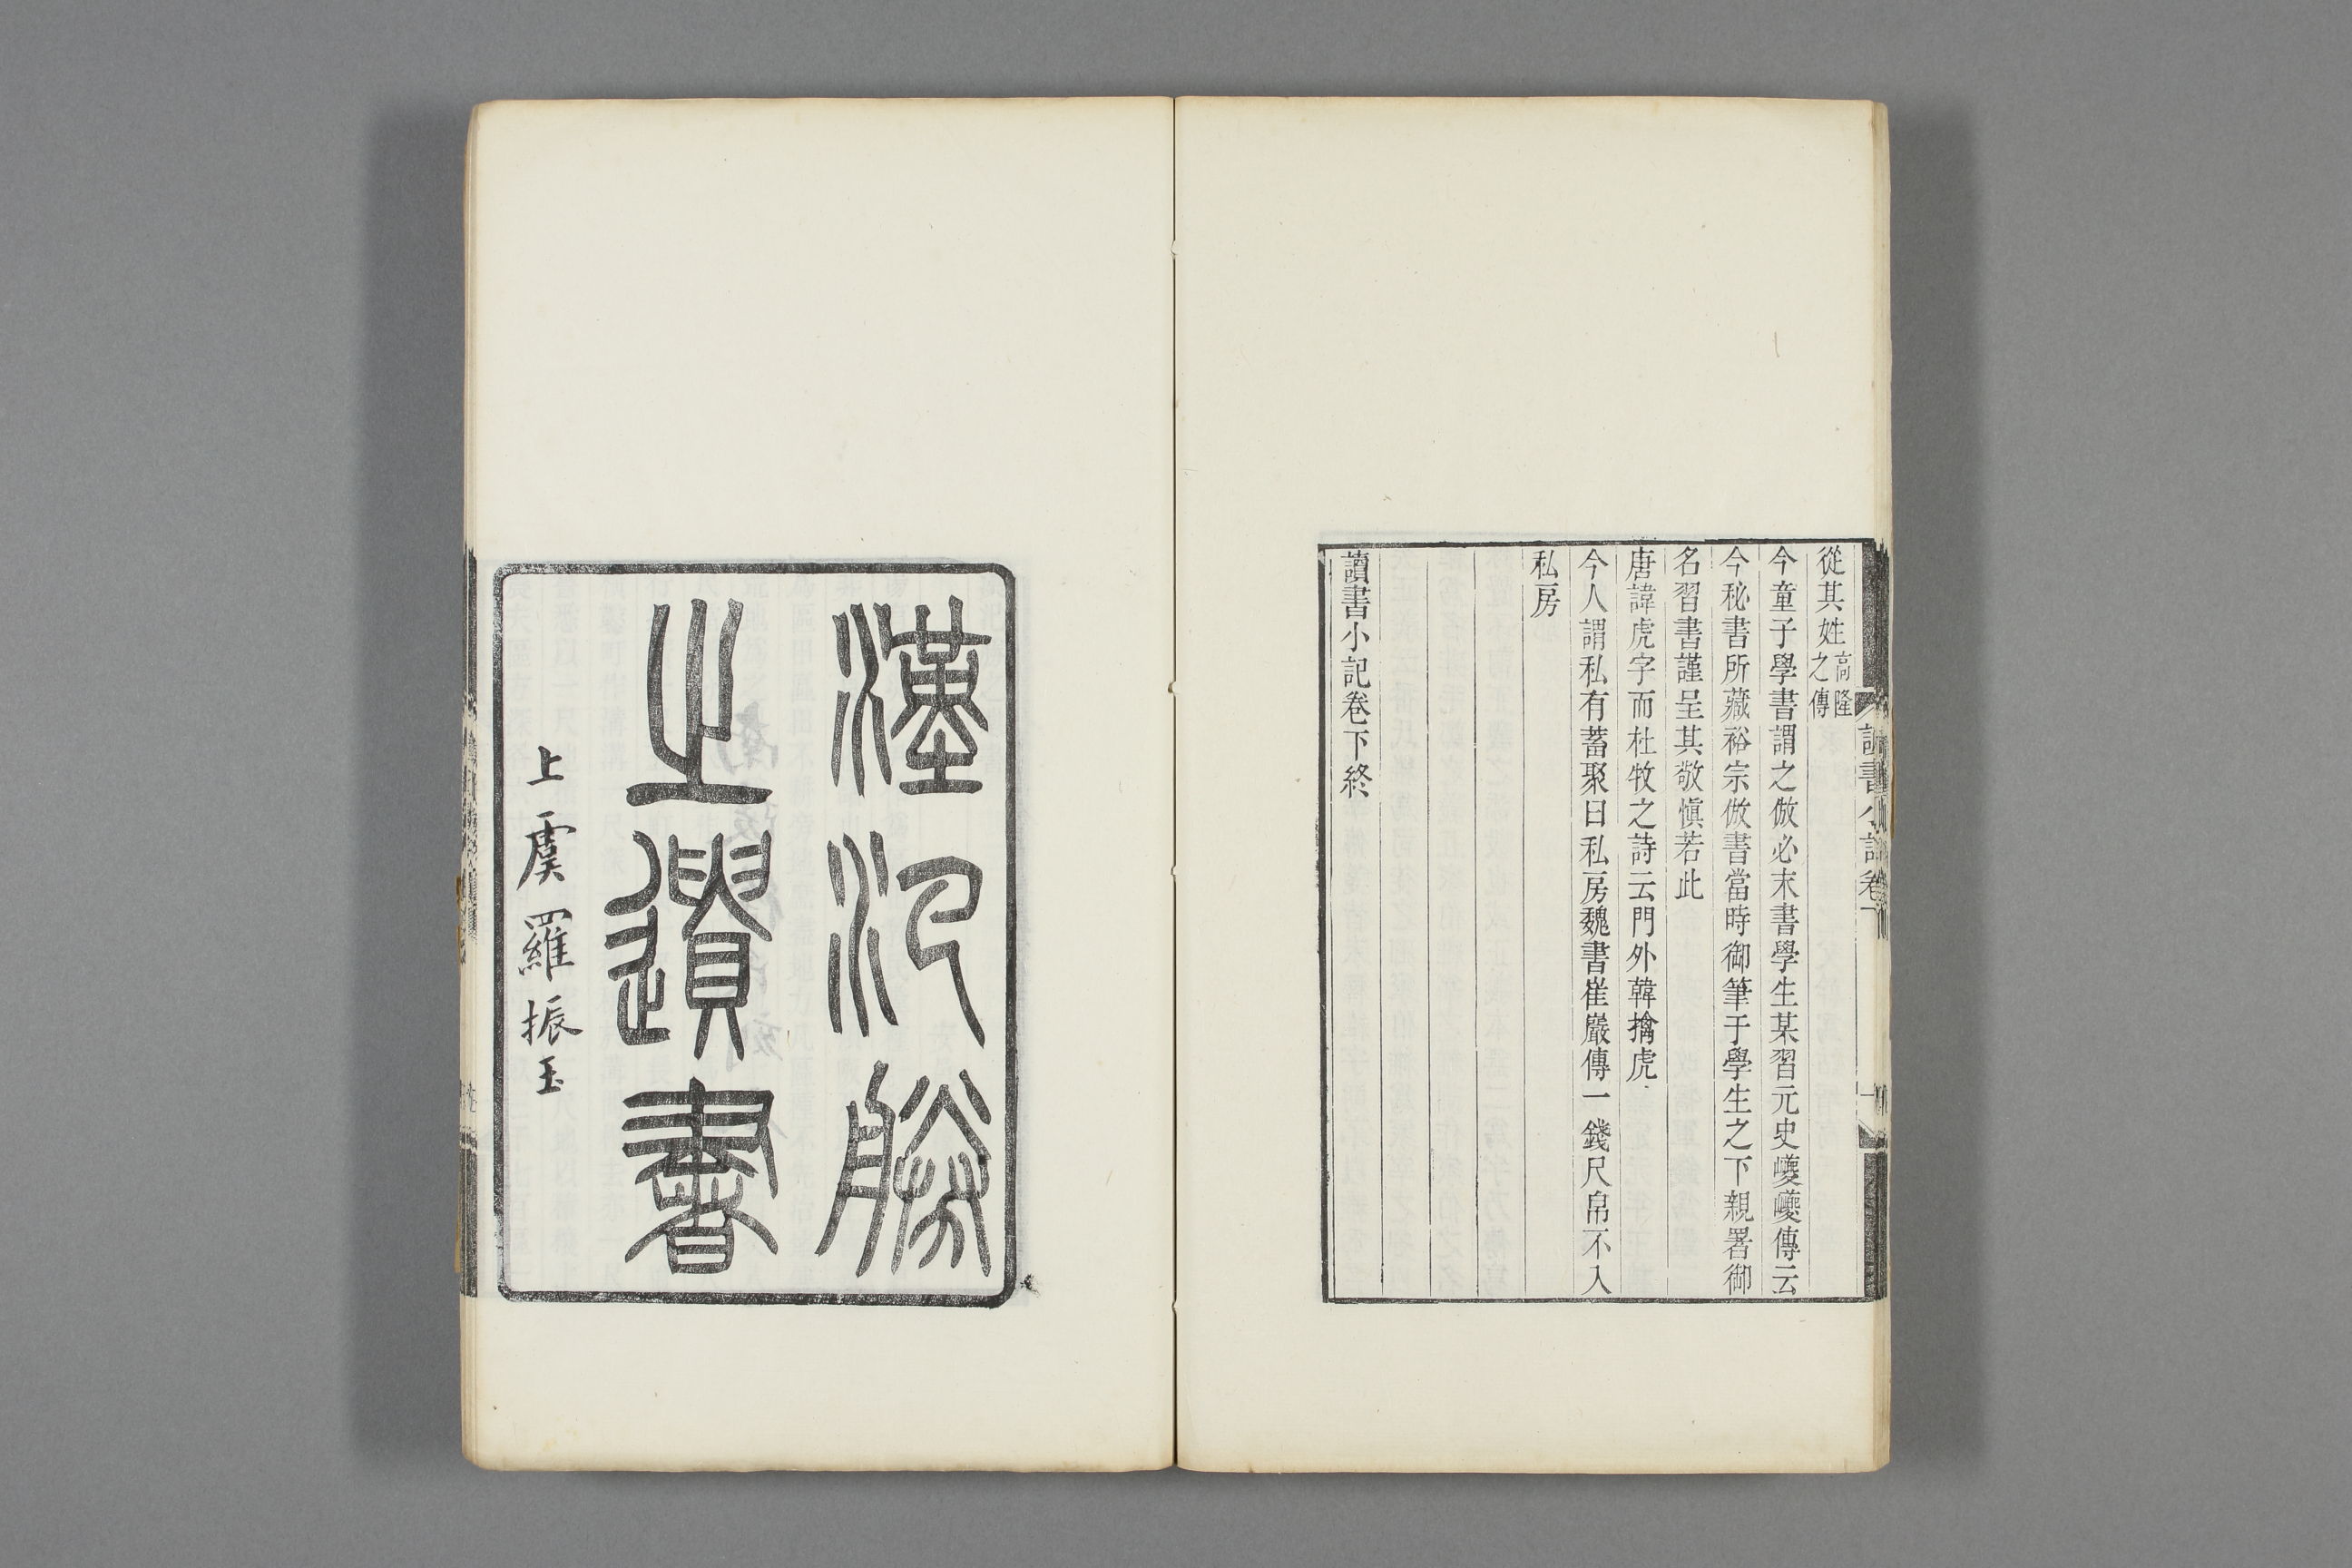 從其姓高隆之傳
今童子學書謂之倣必末書學生某習元史巙巙傳云
今秘書所藏裕宗倣書當時御筆于學生之下親署御
名習書謹呈其敬愼若此
唐諱虎字而杜牧之詩云門外韓擒虎
今人謂私有蓄聚曰私房魏書崔巖傳一錢尺帛不入
私房
讀書小記卷下終
漢氾勝
之遺書
上虞羅振玉